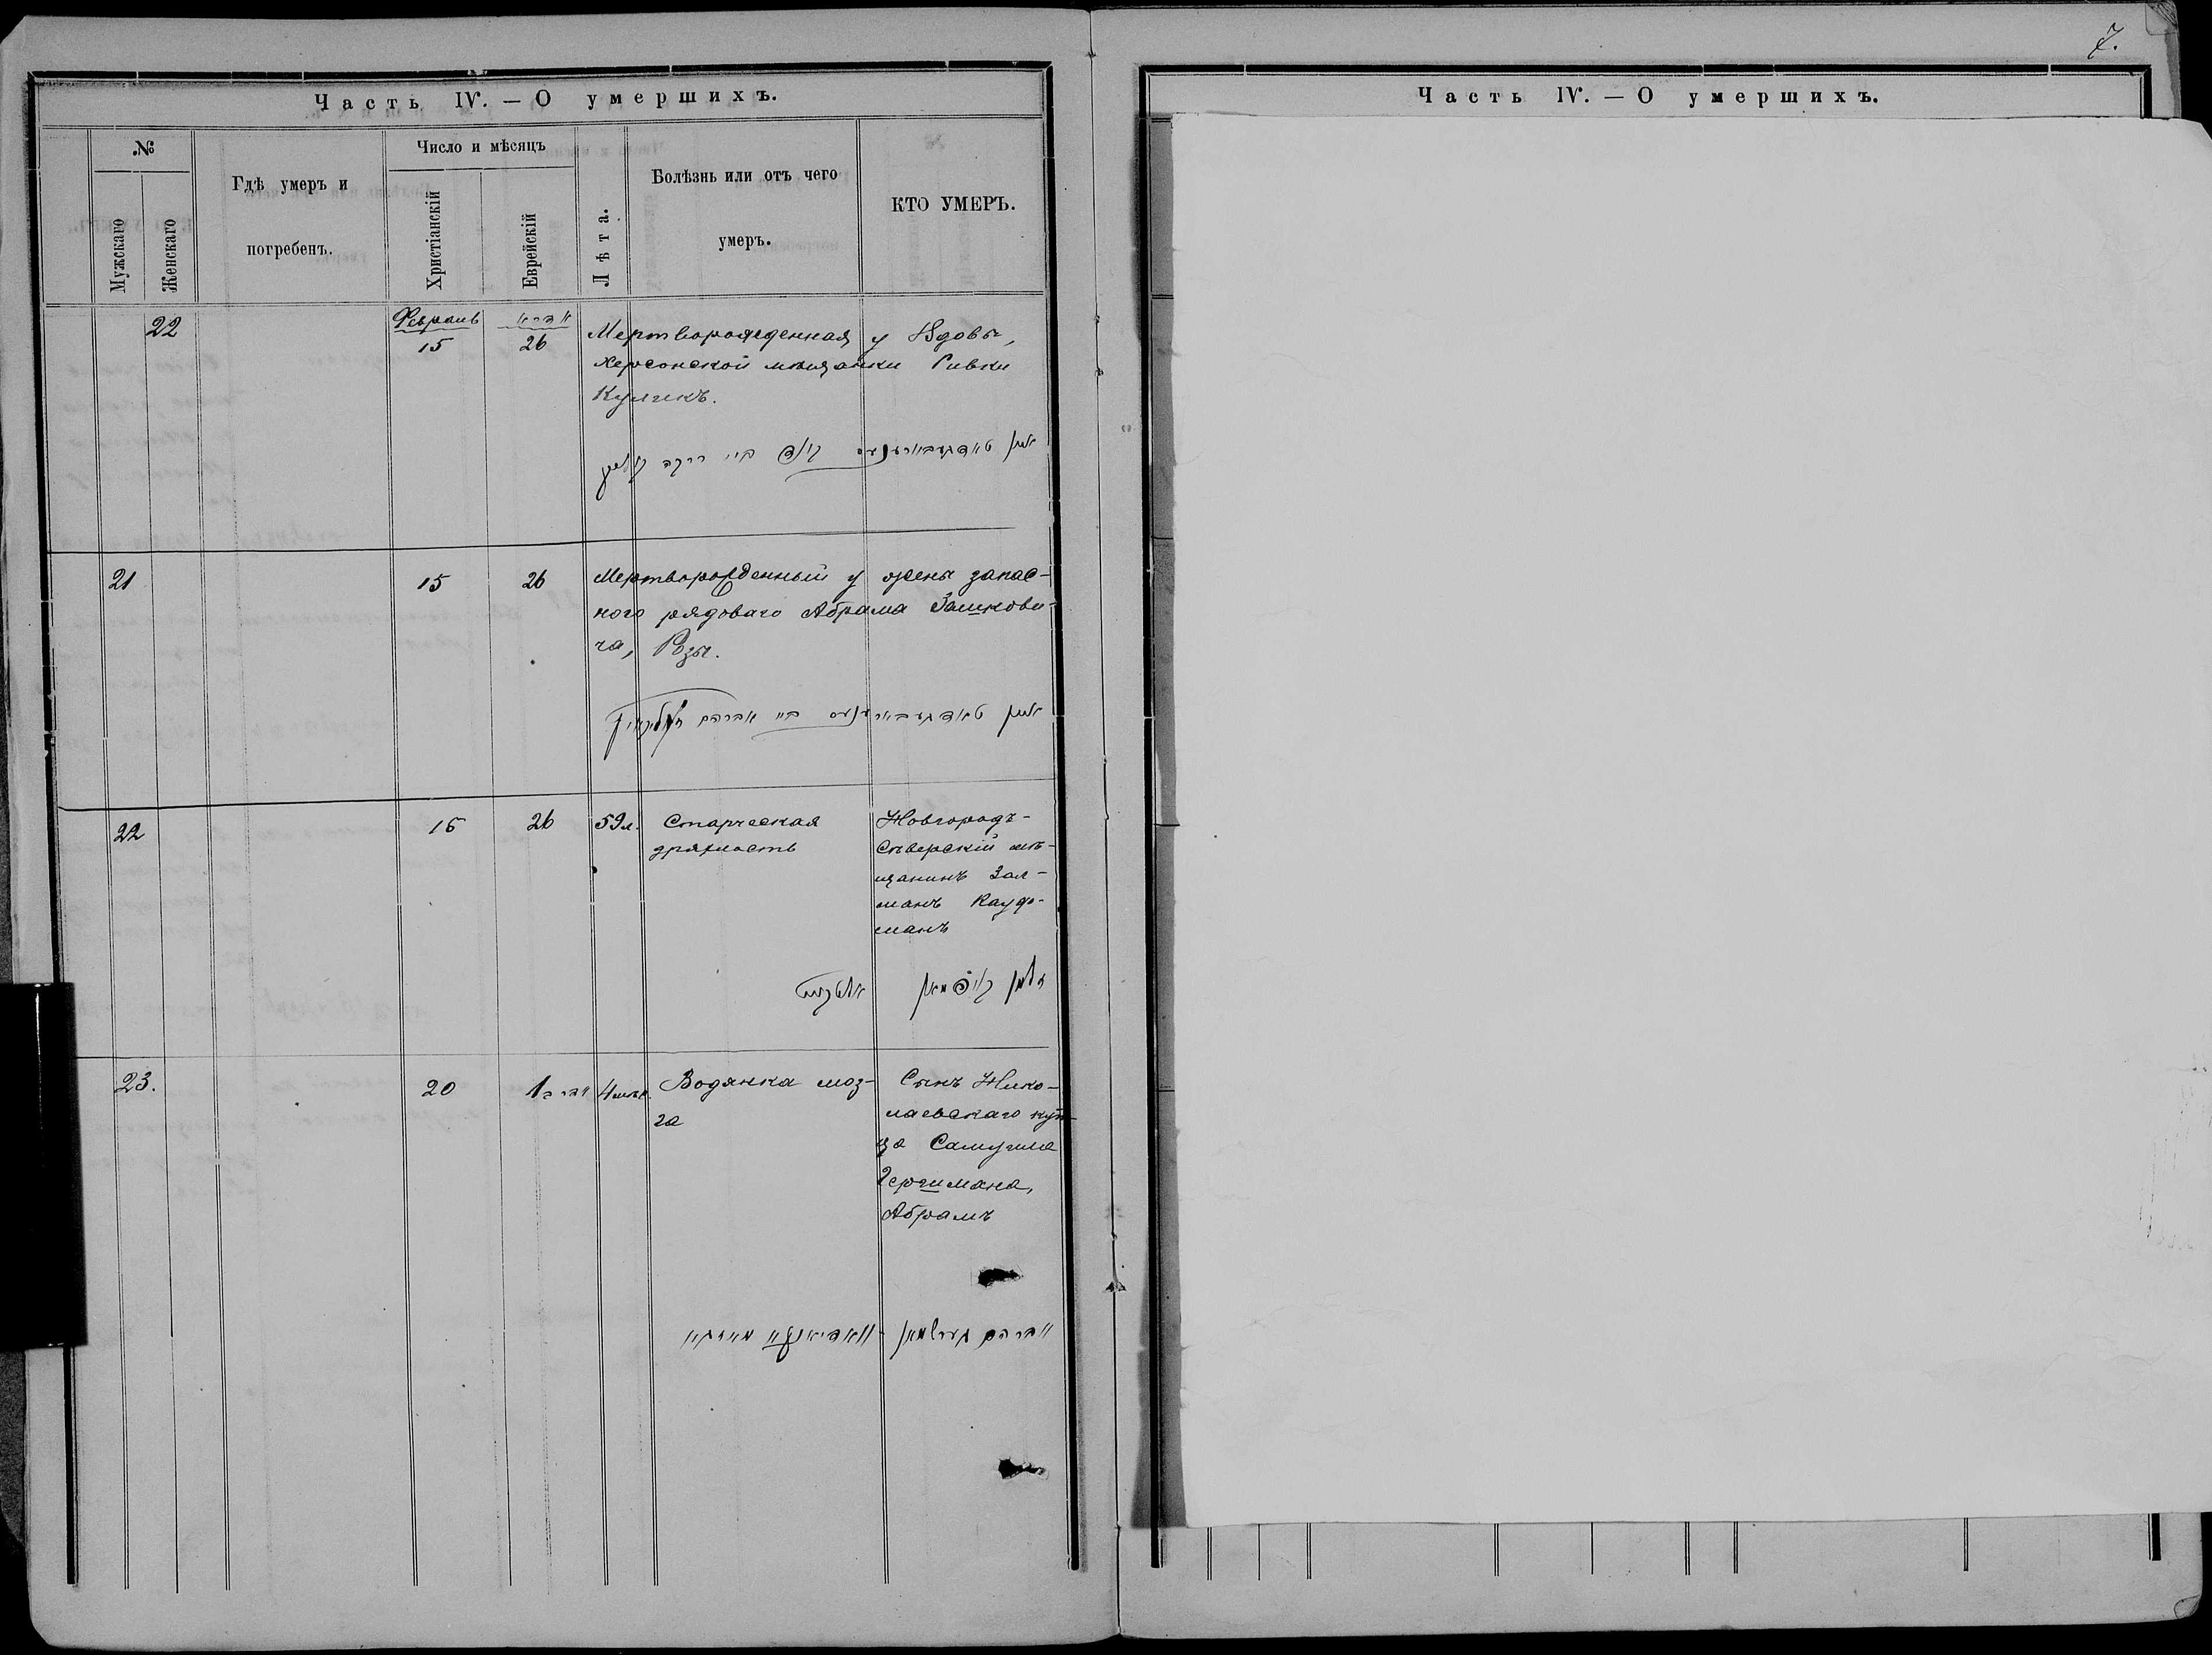 7.
Часть IV. — О умершихъ.
№
Мужскаго
Женскаго
Гдѣ умеръ и
погребенъ.
Число и мѣсяцъ
Христіанскій
Еврейскій
Лѣта.
Болѣзнь или отъ чего
умеръ.
КТО УМЕРЪ.
22
Февраль
15
26
Мертворожденная у Вдовы,
Херсонской мѣщанки Ривки
ביי רבקה
21
15
26
Мертворожденный у жены запас-
ного рядоваго Абрама Зашкови-
ча, Розы.
ביי אברהם
22
15
26
59 л.
Старческая
дряхлость
Новгородъ-
Сѣверскій мѣ-
щанинъ Зал-
манъ Кауф-
манъ
זלמן קויפמאן
23.
20
1
4 мѣс.
Водянка моз-
га
Сынъ Нико-
лаевскаго куп-
ца Самуила
Гершмана,
Абрамъ
אברהם גערשמאן
Часть IV. — О умершихъ.